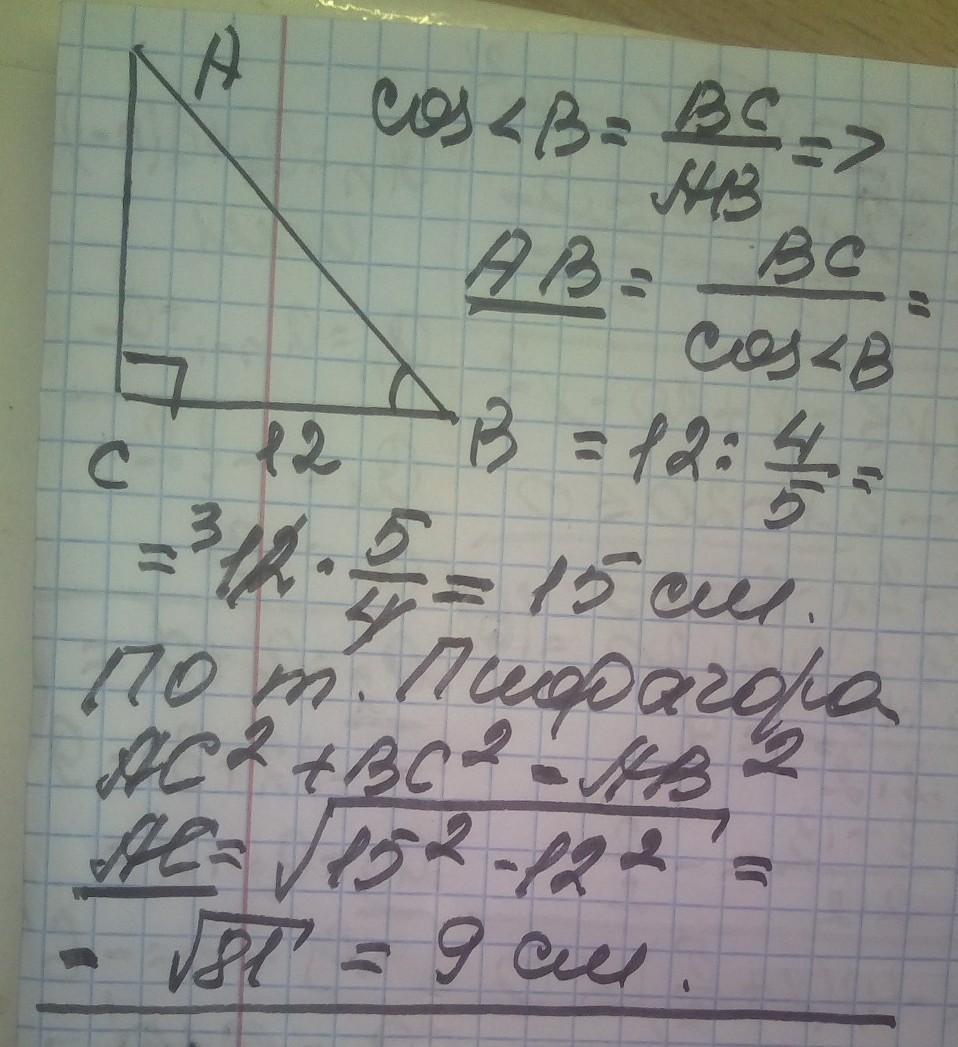 A
cos <B = BC/AB =>
AB = BC/cos <B =
C 12 B = 12 : 4/5 =
= ³12 · 5/4 = 15 см.
По т. Пифагора
AC² + BC² = AB²
AC = √15² - 12² =
= √81 = 9 см.